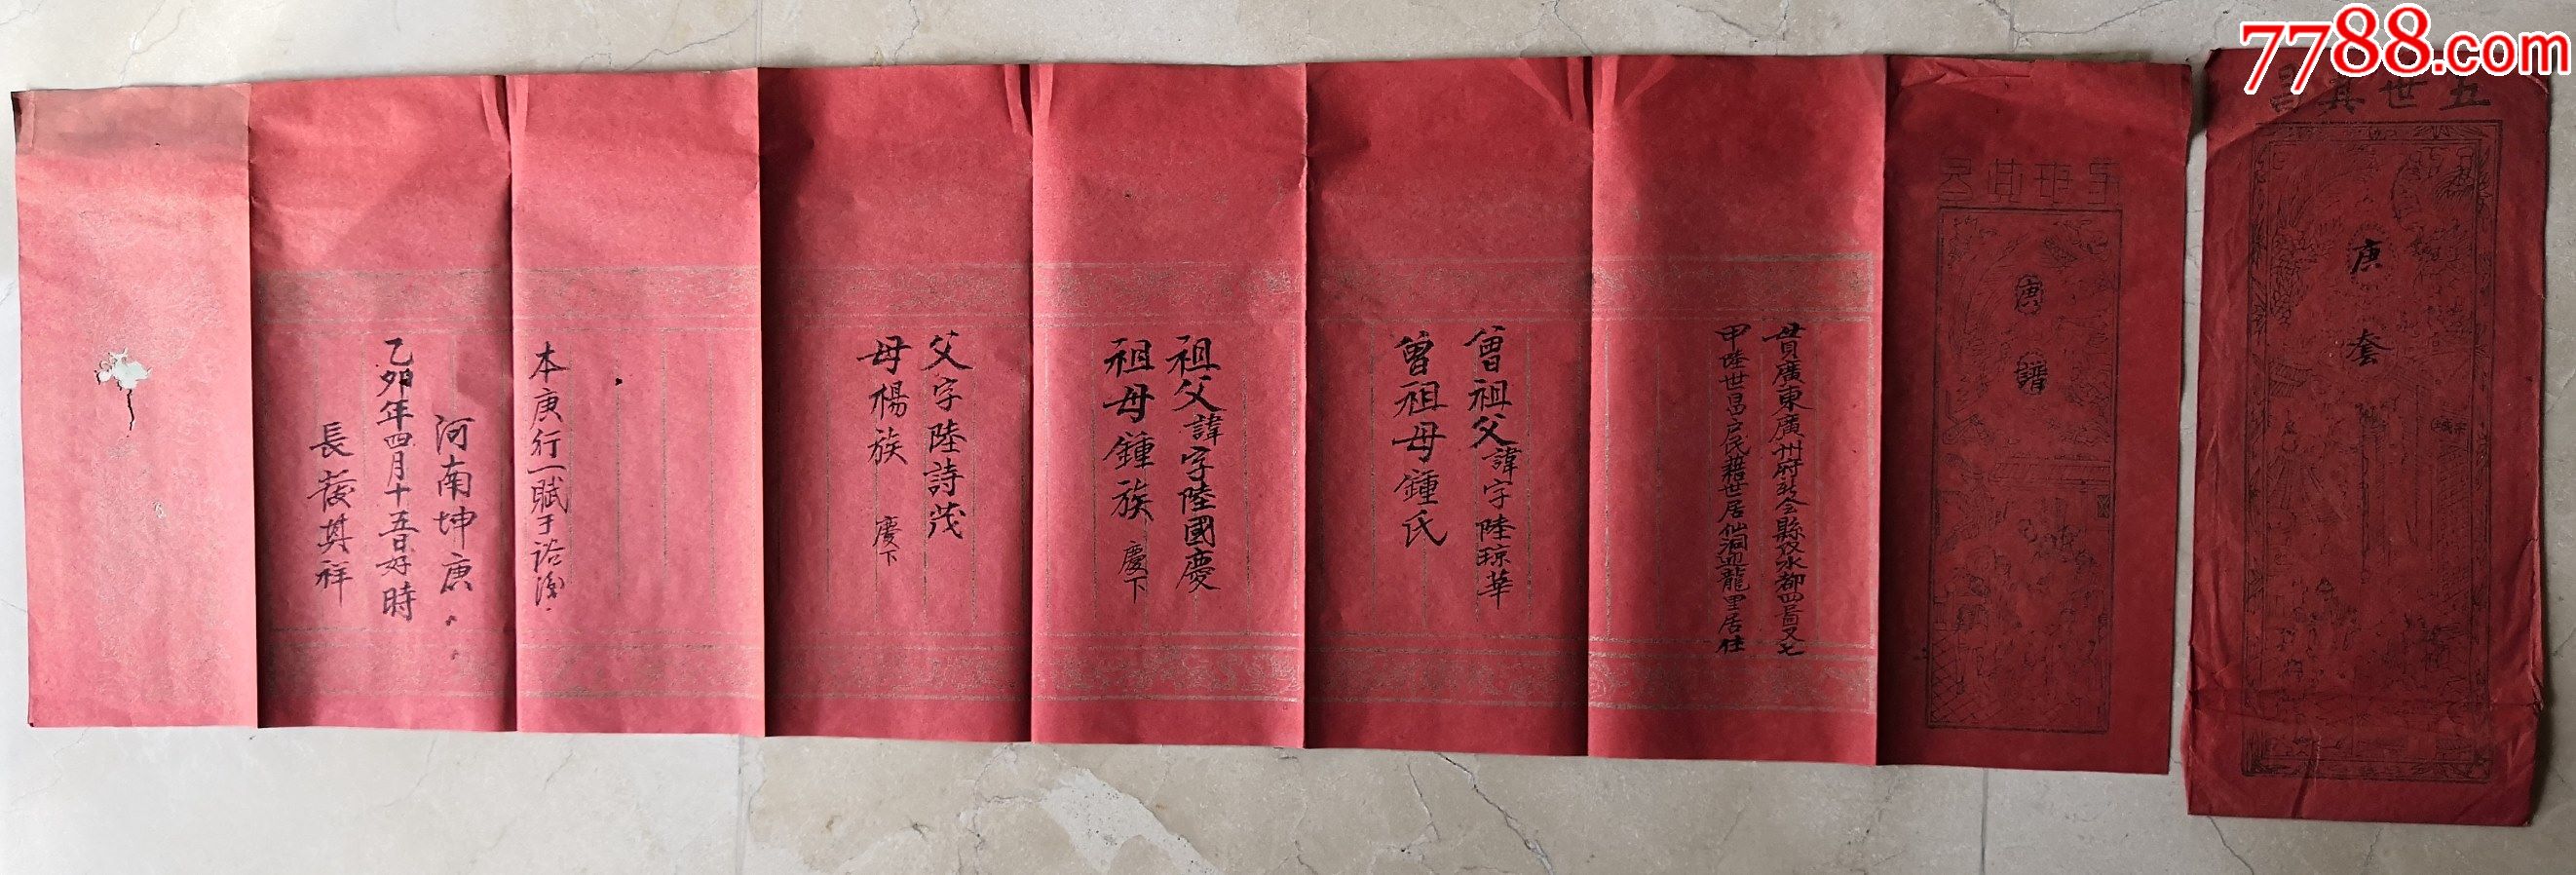 7788.com
五世其昌
庚套
五世其昌
庚譜
世貫廣東廣州府新會縣 水都四啚又七
甲陸世昌户民籍世居仙洞迴龍里居住
曾祖父諱字陸琼華
曾祖母鍾氏
祖父諱字陸國慶
祖母鍾族 慶下
父字陸詩茂
母楊族 慶下
本庚行一賦于
河南坤庚
乙卯年四月十五日好時
長發其祥